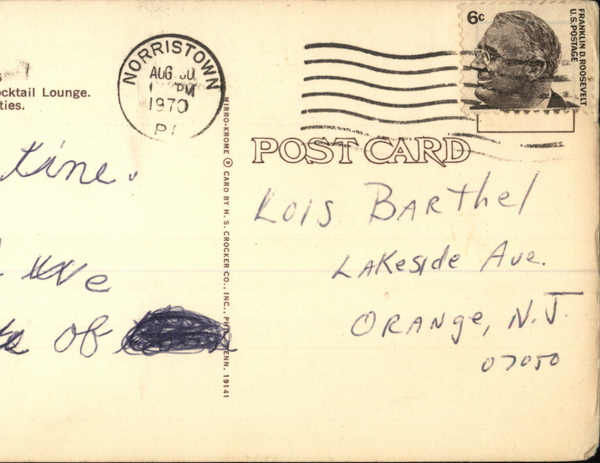 cktail Lounge.
ties.
tine.
we
of
NORRISTOWN
AUG 30
PM
1970
MIRRO-KROME ® CARD BY H. S. CROCKER CO., INC., PENN. 19141
POST CARD
6c
FRANKLIN D. ROOSEVELT
U.S. POSTAGE
Lois Barthel
Lakeside Ave.
Orange, N.J.
07050